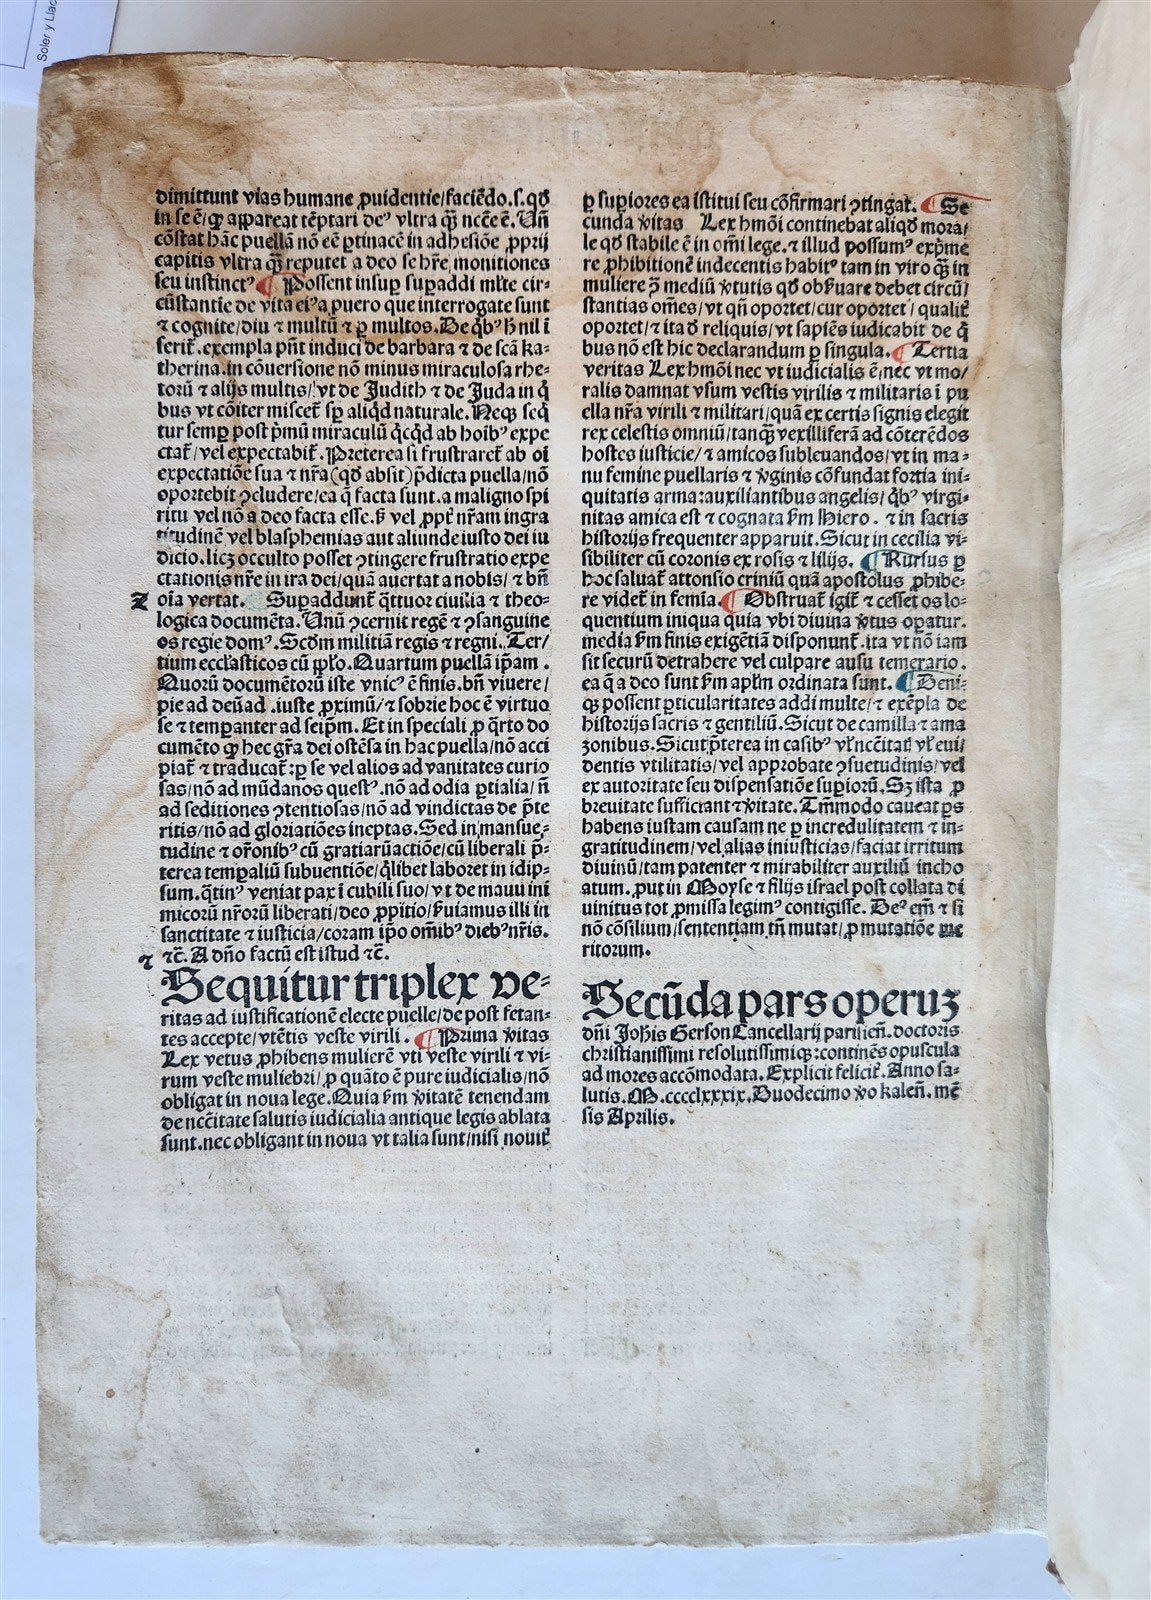 Soler y Llac
dimittunt vias humane ꝓuidentie/faciēdo.s.qđ
in se ē/ꝙ appareat tēptari deꝰ vltra q̄ꝫ ncēe ē. Uñ
cōstat hāc puellā nō eē ꝑtinacē in adhesiōe ꝓprij
capitis vltra q̄ꝫ reputet a deo se hr̄e monitiones
seu instinctꝰ ¶ Possent insuꝑ suꝑaddi ml̄te cir⸗
cūstantie de vita eiꝰ a puero que interrogate sunt
⁊ cognite/diu ⁊ multū ⁊ ꝑ multos. De q̄bꝰ h̄ nil ī
serit̄. exempla pn̄t induci de barbara ⁊ de scā ka⸗
therina. in cōuersione nō minus miraculosa rhe⸗
torū ⁊ alijs multis/vt de Judith ⁊ de Juda in q̄
bus vt cōiter miscet̄ sꝑ aliqđ naturale. Neqꝫ seq̄
tur semꝑ post p̄mū miraculū q̄cq̄d ab hoībꝰ expe
ctat̄/vel expectabit̄. Preterea si frustraret̄ ab oī
expectatiōe sua ⁊ nr̄a (qđ absit) p̄dicta puella/nō
oportebit ꝯcludere/ea q̄ facta sunt. a maligno spi
ritu vel nō a deo facta esse. s̄ vel ꝓpt̄ nr̄am ingra
titudinē vel blasphemias aut aliunde iusto dei iu
dicio. licꝫ occulto posset ꝯtingere frustratio expe
ctationis nr̄e in ira dei/quā auertat a nobis/⁊ bn̄
Z oīa vertat. ¶ Suꝑaddunt̄ q̄ttuor ciuilia ⁊ theo⸗
logica documēta. Unū ꝯcernit regē ⁊ ꝯsanguine
os regie domꝰ. Scđm militiā regis ⁊ regni. Ter/
tium eccl̄asticos cū pp̄lo. Quartum puellā ip̄am.
Quorū documētorū iste vnicꝰ ē finis. bn̄ viuere/
pie ad deū ad .iuste ꝓximū/⁊ sobrie hoc ē virtuo
se ⁊ temꝑanter ad seip̄m. Et in speciali ꝓ q̄rto do
cumēto ꝙ hec gr̄a dei ostēsa in hac puella/nō acci
piat̄ ⁊ traducat̄: ꝑ se vel alios ad vanitates curio
sas/nō ad mūdanos questꝰ. nō ad odia ꝑtialia/ñ
ad seditiones ꝯtentiosas/nō ad vindictas de p̄te
ritis/nō ad gloriatiōes ineptas. Sed in mansue⸗
tudine ⁊ or̄onibꝰ cū gratiarū actiōe/cū liberali p̄⸗
terea temꝑaliū subuentiōe/q̄libet laboret in idip⸗
sum. q̄tinꝰ veniat pax ī cubili suo/vt de manu ini
micorū nr̄orū liberati/deo ꝓpitio/s̄uiamus illi in
sanctitate ⁊ iusticia/coram ip̄o om̄ibꝰ diebꝰ nr̄is.
⁊ ⁊c̄. A dn̄o factū est istud ⁊c̄.
Sequitur triplex ve⸗
ritas ad iustificationē electe puelle/de post fetan⸗
tes accepte/vtētis veste virili. ¶ Prima v̓itas
Lex vetus ꝓhibens mulierē vti veste virili ⁊ vi⸗
rum veste muliebri/ꝓ quāto ē pure iudicialis/nō
obligat in noua lege. Quia s̄m v̓itatē tenendam
de ncc̄itate salutis iudicialia antique legis ablata
sunt. nec obligant in noua vt talia sunt/nisi nouit̄
ꝑ suꝑiores ea īstitui seu cōfirmari ꝯtingat. ¶ Se
cunda v̓itas Lex hm̄oi continebat aliqđ mora/
le qđ stabile ē in om̄i lege. ⁊ illud possumꝰ exp̄me
re ꝓhibitionē indecentis habitꝰ tam in viro q̄ꝫ in
muliere ꝯ̄ mediū v̓tutis qđ obs̄uare debet circū/
stantias om̄es/vt qn̄ oportet/cur oportet/qualit̄
oportet/⁊ ita đ reliquis/vt sapiēs iudicabit de q̄
bus nō est hic declarandum ꝑ singula. ¶ Tertia
veritas Lex hm̄oi nec vt iudicialis ē/nec vt mo/
ralis damnat vsum vestis virilis ⁊ militaris ī pu
ella nr̄a virili ⁊ militari/quā ex certis signis elegit
rex celestis omniū/tanq̄ꝫ vexilliferā ad cōterēdos
hostes iusticie/⁊ amicos subleuandos/vt in ma⸗
nu femine puellaris ⁊ v̓ginis cōfundat fortia ini⸗
quitatis arma: auxiliantibus angelis/q̄bꝰ virgi⸗
nitas amica est ⁊ cognata s̄m Hiero. ⁊ in sacris
historijs frequenter apparuit. Sicut in cecilia vi⸗
sibiliter cū coronis ex rosis ⁊ lilijs. ¶ Rursus ꝑ
hoc saluat̄ attonsio criniū quā apostolus ꝓhibe⸗
re videt̄ in femīa. ¶ Obstruat̄ igit̄ ⁊ cesset os lo⸗
quentium iniqua quia vbi diuina v̓tus oꝑatur.
media s̄m finis exigētiā disponunt̄. ita vt nō iam
sit securū detrahere vel culpare ausu temerario.
ea q̄ a deo sunt s̄m apl̄m ordinata sunt. ¶ Deni⸗
qꝫ possent ꝑticularitates addi multe/⁊ exēpla de
historijs sacris ⁊ gentiliū. Sicut de camilla ⁊ ama
zonibus. Sicut p̄terea in casibꝰ vl̄ ncc̄itatꝭ vl̄ eui/
dentis vtilitatis/vel approbate ꝯsuetudinis/vel
ex autoritate seu dispensatiōe suꝑiorū. Sꝫ ista ꝓ
breuitate sufficiant ⁊ v̓itate. Tm̄modo caueat ꝑs
habens iustam causam ne ꝑ incredulitatem ⁊ in⸗
gratitudinem/vel alias iniusticias/faciat irritum
diuinū/tam patenter ⁊ mirabiliter auxiliū incho
atum. ꝓut in Moyse ⁊ filijs israel post collata di
uinitus tot ꝓmissa legimꝰ contigisse. Deꝰ em̄ ⁊ si
nō cōsilium/sententiam tn̄ mutat/ꝓ mutatiōe me
ritorum.
Secūda pars operuꝫ
dn̄i Joh̄is Gerson Cancellarij parisieñ. doctoris
christianissimi resolutissimiqꝫ: continēs opuscula
ad mores accōmodata. Explicit felicit̄. Anno sa⸗
lutis. M.cccclxxxix. Duodecimo v̓o kaleñ. mē
sis Aprilis.